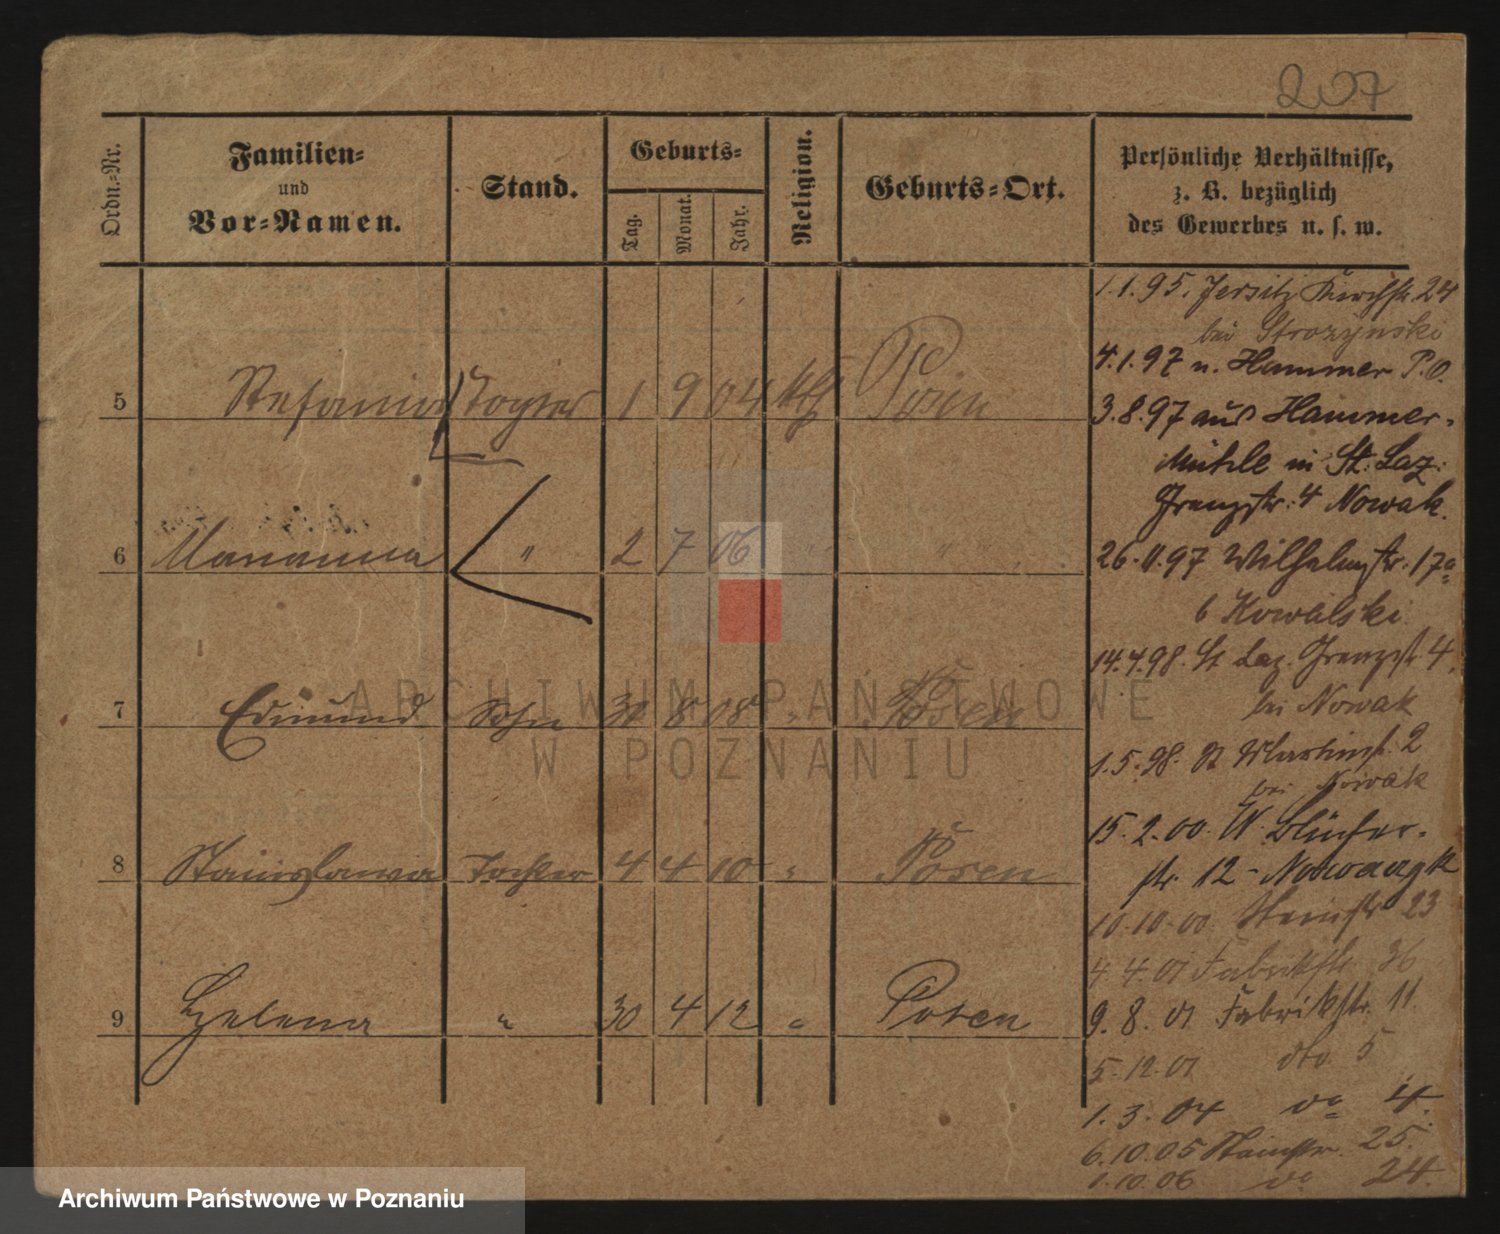 207
Ordn.=Nr.
Familien=
und
Vor=Namen.
Stand.
Geburts=
Tag.
Monat.
Jahr.
Religion.
Geburts=Ort.
Persönliche Verhältnisse,
z. B. bezüglich
des Gewerbes u. s. w.
5 Stefania Tochter 1 9 04 kth Posen
6 Marianna " 2 7 06 " "
7 Edmund Sohn 30 8 08 " Posen
8 Stanislawa Tochter 4 4 10 " Posen
9 Helena " 30 4 12 " Posen
1.1.95. Jersitz Kirchstr 24
bei Strozynski
4.1.97 n. Hammer P. O.
3.8.97 aus Hammer-
Mühle in St. Laz.
Grenzstr. 4 Nowak.
26.11.97 Wilhelmstr. 17a
b Kowalski
14.4.98. St Laz. Grenzstr 4.
bei Nowak
1.5.98. St Martinstr. 2
bei Nowak
15.2.00. W. Blücher-
str 12 -
10.10.00. Steinstr 23
4.4.01 Fabrikstr. 36
9.8.01 Fabrikstr. 11
5.12.01 dto. 5
1.3.04 do 4.
6.10.05 Steinstr. 25.
1.10.06 do 24.
ARCHIWUM PAŃSTWOWE
W POZNANIU
Archiwum Państwowe w Poznaniu